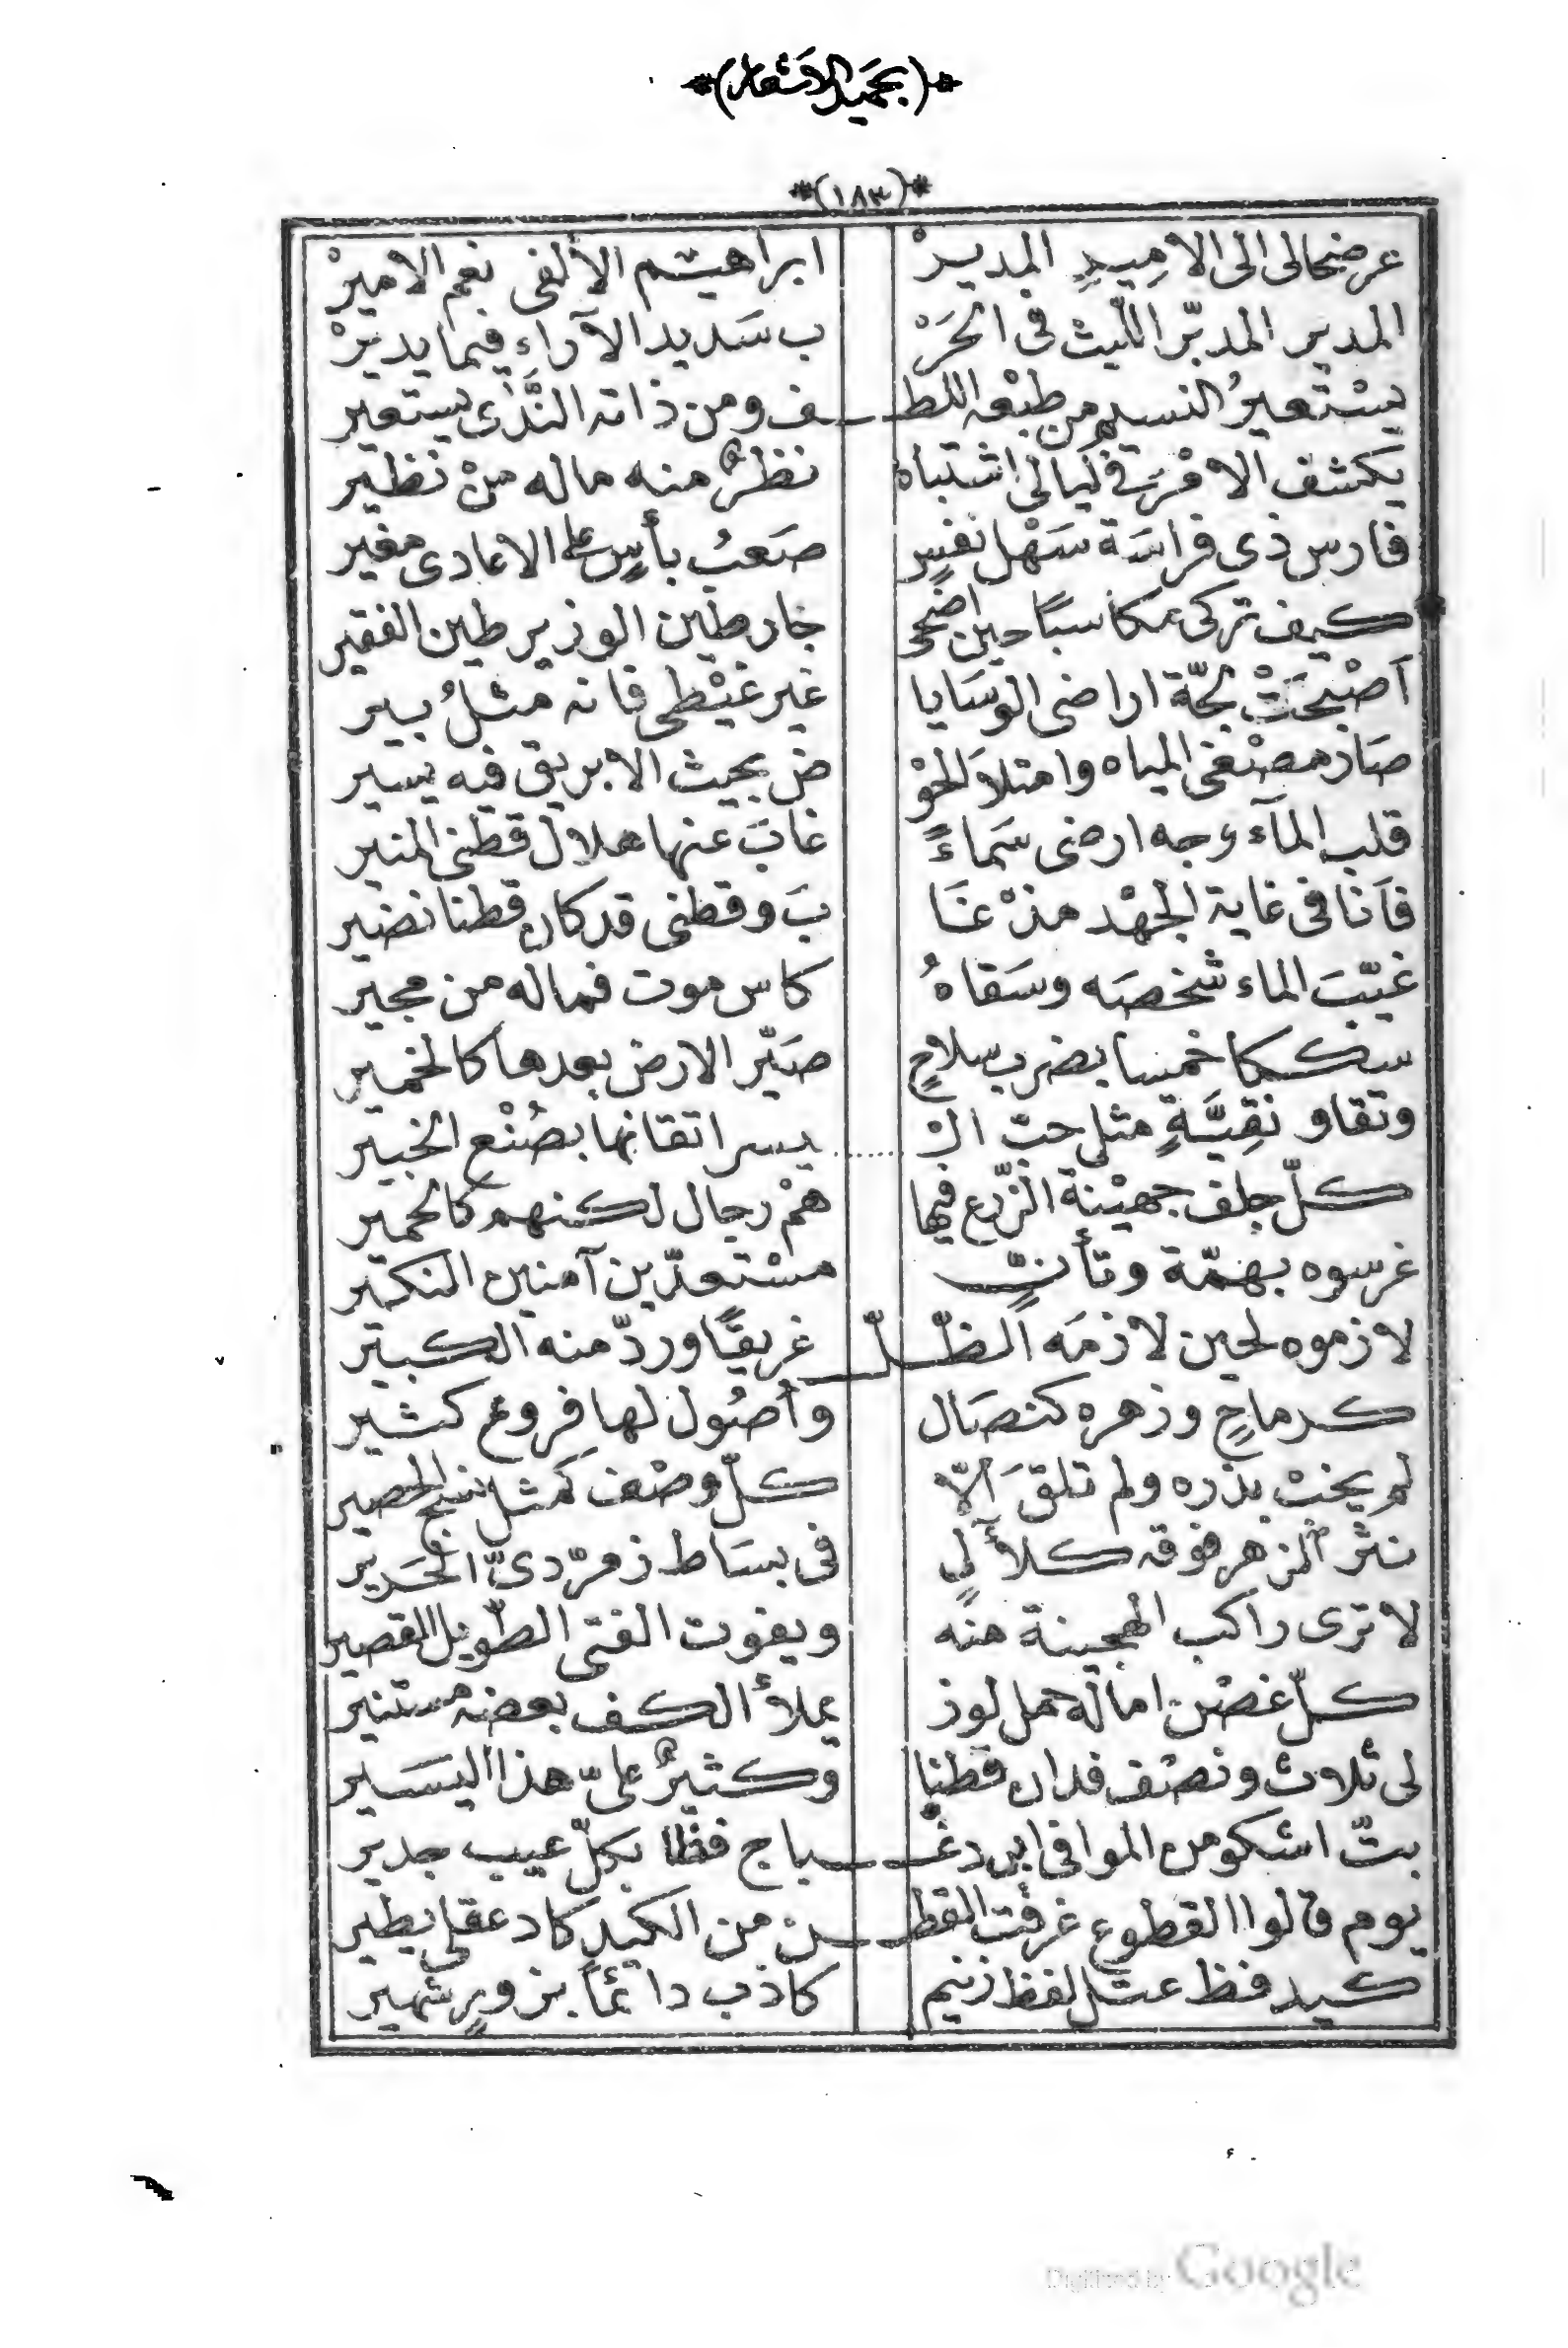 *(بحميد الاشعار)*
*(١٨٣)*
عرضحالى الى الامِيدِ المديرْ ابراهيم الألفى نعم الاميرْ
المدير المدبّر الليث فى الحَرْ ب سَديد الآراءِ فيما يديرْ
يسْتعيرُ النسيم من طبْعه اللطـ ـف ومن ذاته النَّدٰى يستعير
يكشف الامْر فى ليالى اشتباه نظرٌ منه ماله منْ نظير
فارس ذى فراسَة سَهْل نفسٍ صَعبُ بأسٍ على الاعادى مغير
كيف تركى مكاسبًا حين اضحى جار طين الوزير طين الفقير
اَصْبحَتْ لجّة اراضى الوسَايا غير غيْطى فانه مثلُ بير
صَار مصْفى المياه وامتلاَ الحَوْ ض بحيث الابريق فيه يسير
قلب المآء وجه ارضى سَماءً غابَ عنها هلال قطنى المنير
فاَنا فى غاية الجهْد مذْ غَا بَ وقطنى قد كان قطنا نضير
غيّبَ الماء شخصَه وسَقاهُ كاس موت فماله من مجير
سككا خمسا بضرب سلاحٍ صَيّر الارض بعدها كالخمير
وتقاو نقِيَّةٍ مثل حب الـ يسر اتقانها بصُنْع الخبير
كلّ جلف جهيْنة الزّرع فيها همْ رجال لكنهم كالحمير
غرسوه بهمّة وتأنٍّ مسْتعدّين آمنين النكير
لازموه لحين لازمَه الظّـ ـلّ غريقًا وردّ منه الكبير
كرماحٍ وزهره كنصَال وأصُول لها فروع كثير
لم يخبْ بذره ولم تلقَ الاّ كلّ وصْف كمثل نسج الحصير
نثر الزهر فوقه كلآلٍ فى بسَاط زمرّدىّ الحَرير
لا ترى راكب الهجينة منه ويفوت الفتى الطّويل القصير
كلّ غصْن اماله حمل لوز يملأ الكف بعضه مستنير
لى ثلاث ونصْف فدان قطنا وكثيرٌ علىّ هذا اليسَير
بتّ اشكو من الموافى ابن دغـ ـباج فظّا بكلّ عيب جدير
يوم قالوا القطوع غرقت القطـ ـن من الكيدِ كاد عقلى يطير
كيد فظ عتلّ لفظ زنيم كاذب دائماً بزورٍ شهير
Digitized by Google